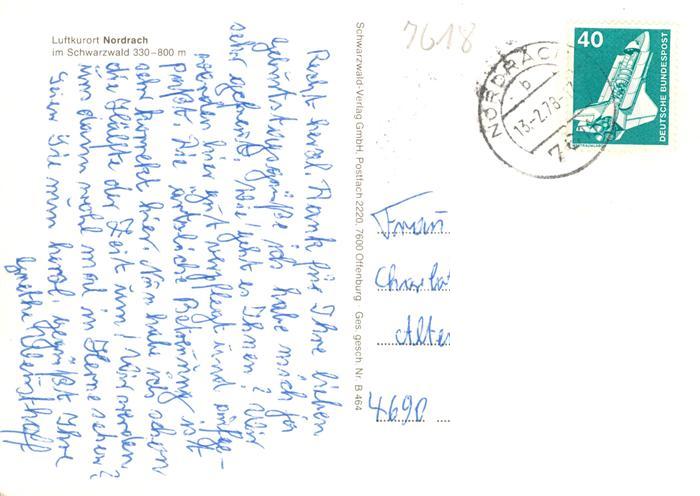 Luftkurort Nordrach
im Schwarzwald 330–800 m
Recht herzl. Dank für Ihre lieben
Geburtstagsgrüße ich habe mich so
sehr gefreut. Wie geht es Ihnen? Wir
werden hier gut verpflegt und
Die ärztliche Betreuung ist
sehr korrekt hier. Nun habe ich schon
die Hälfte der Zeit um! Wir werden
uns dann wohl mal in Herne sehen?
Seien Sie nun herzl. gegrüßt Ihre
Schwarzwald-Verlag GmbH, Postfach 2220, 7600 Offenburg Ges. gesch. Nr. B 464
7618
NORDRACH
b
13.-2.78
76
40
DEUTSCHE BUNDESPOST
Frau
Alte
4690